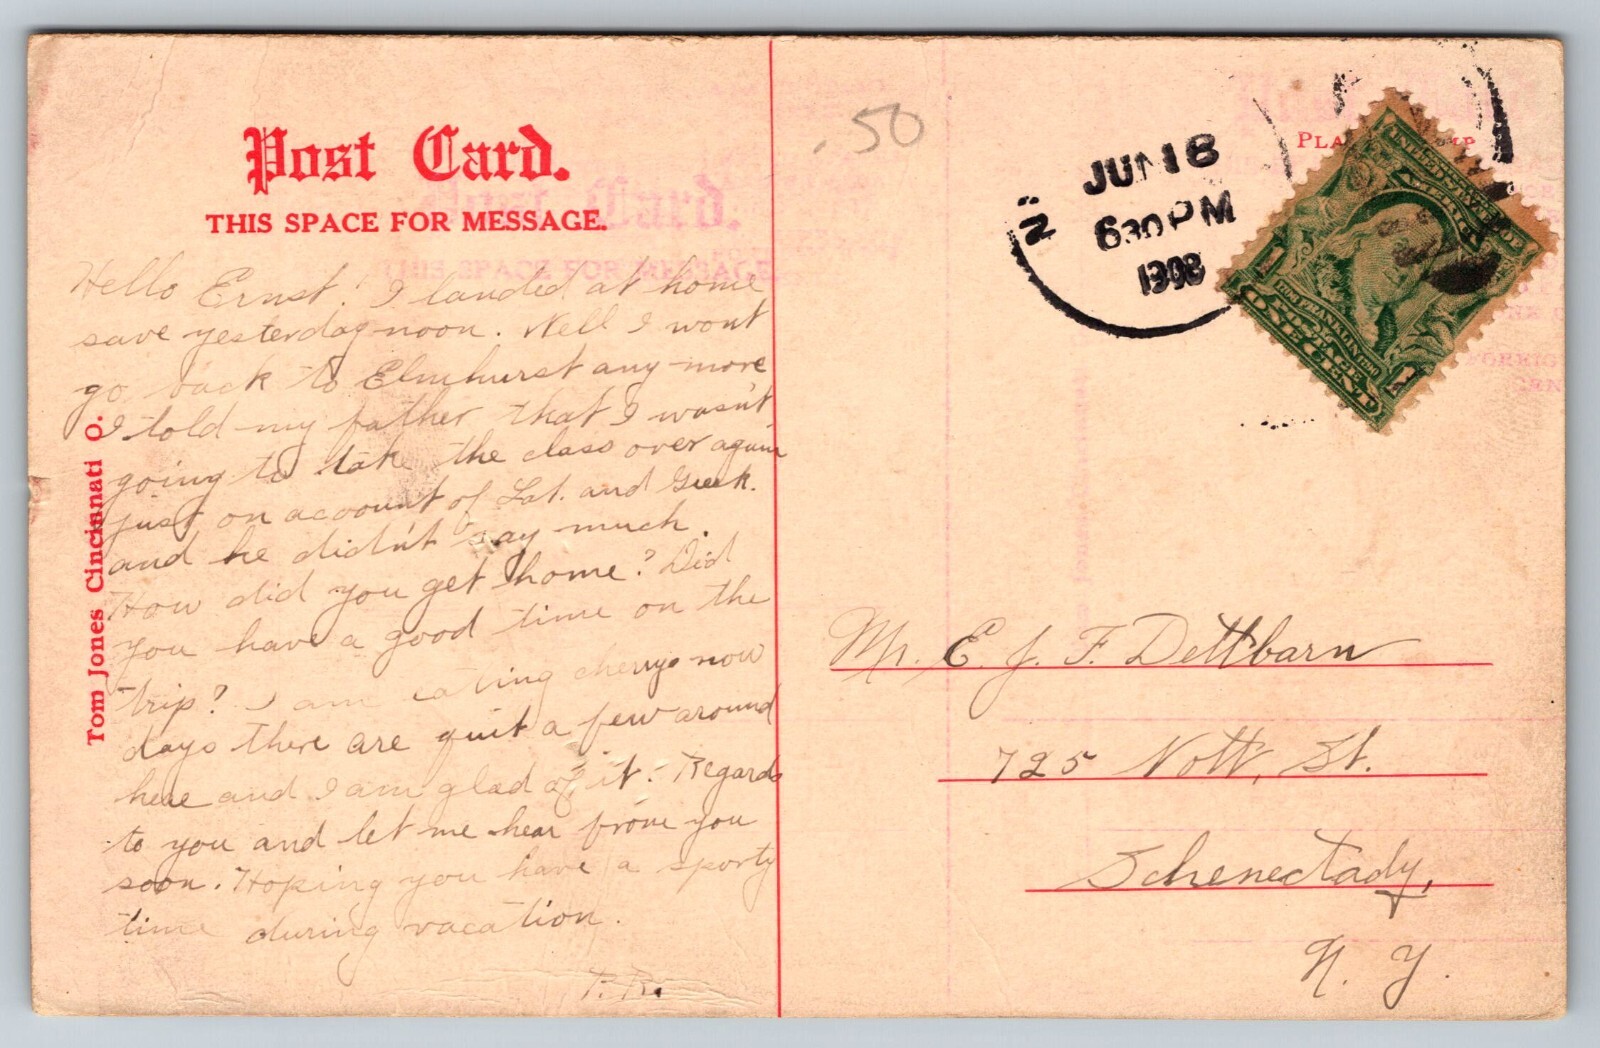 Post Card.
THIS SPACE FOR MESSAGE.
Hello Ernst! I landed at home
save yesterday noon. Well I wont
go back to Elmhurst any more
I told my father that I wasn't
going to take the class over again
just on account of Lat. and Greek.
and he didn't say much.
How did you get home? Did
you have a good time on the
trip? I am eating cherrys now
days there are quit a few around
here and I am glad of it. Regards
to you and let me hear from you
soon. Hoping you have a sporty
time during vacation.
P. R.
Tom Jones Cincinnati O.
.50
JUN 18
630 PM
1908
N.
PLA
MP
UNITED STATES OF
AMERICA
1706 FRANKLIN 1790
POSTAGE
ONE CENT
1 1
Mr. E. J. F. Dettbarn
725 Nott, St.
Schenectady,
N. Y.